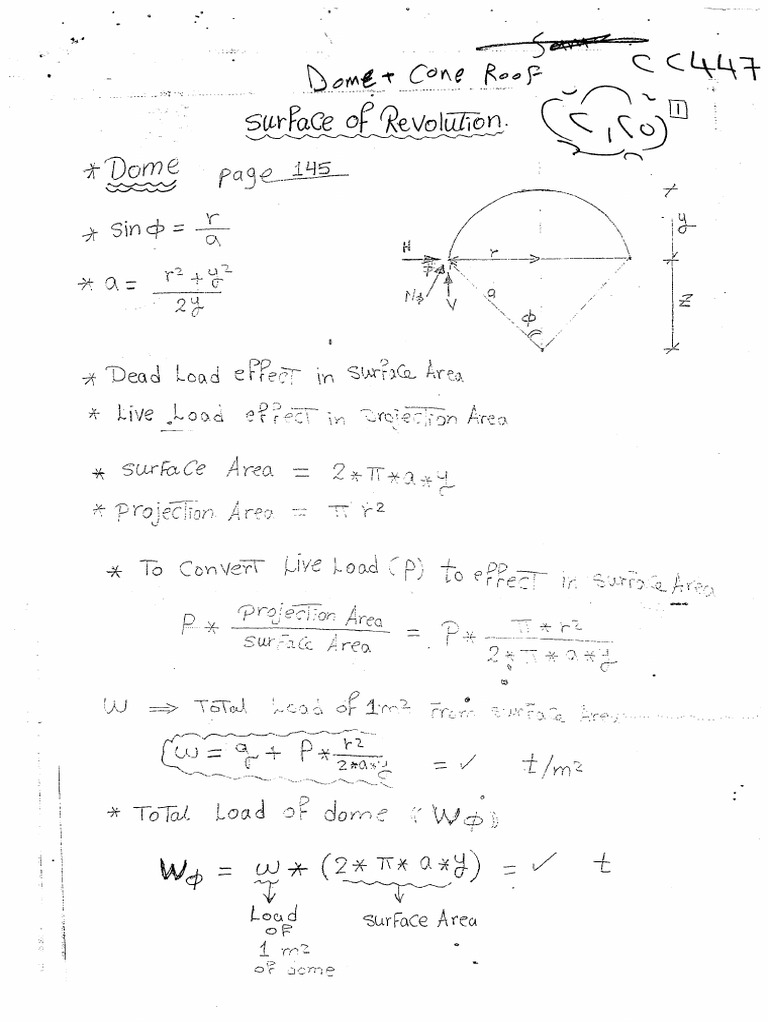 Dome + Cone Roof
CC447
Surface of Revolution.
1
* Dome page 145
* sin φ = r / a
* a = (r² + y²) / 2y
H
r
y
Nφ
V
a
φ
Z
* Dead Load effect in surface Area
* Live Load effect in projection Area
* surface Area = 2*π*a*y
* projection Area = π r²
* To Convert Live Load (P) to effect in surface Area
P * projection Area / surface Area = P * π*r² / 2*π*a*y
W ⇒ Total Load of 1m² From surface Area
w = g + P * r² / 2*a*y = ✓ t/m²
* Total Load of dome (Wφ)
Wφ = w * (2*π*a*y) = ✓ t
Load surface Area
of
1 m²
of dome